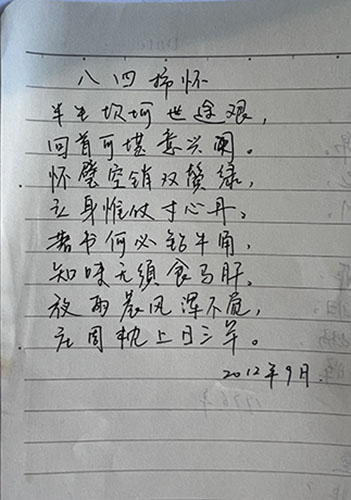 八四抒怀
半生坎坷世途艰，
回首可堪意兴阑。
怀璧空销双鬓绿，
立身惟仗寸心丹。
著书何必钻牛角，
知味无须食马肝。
雨晨风浑不觉，
庄周枕上日三竿。
2012年9月.